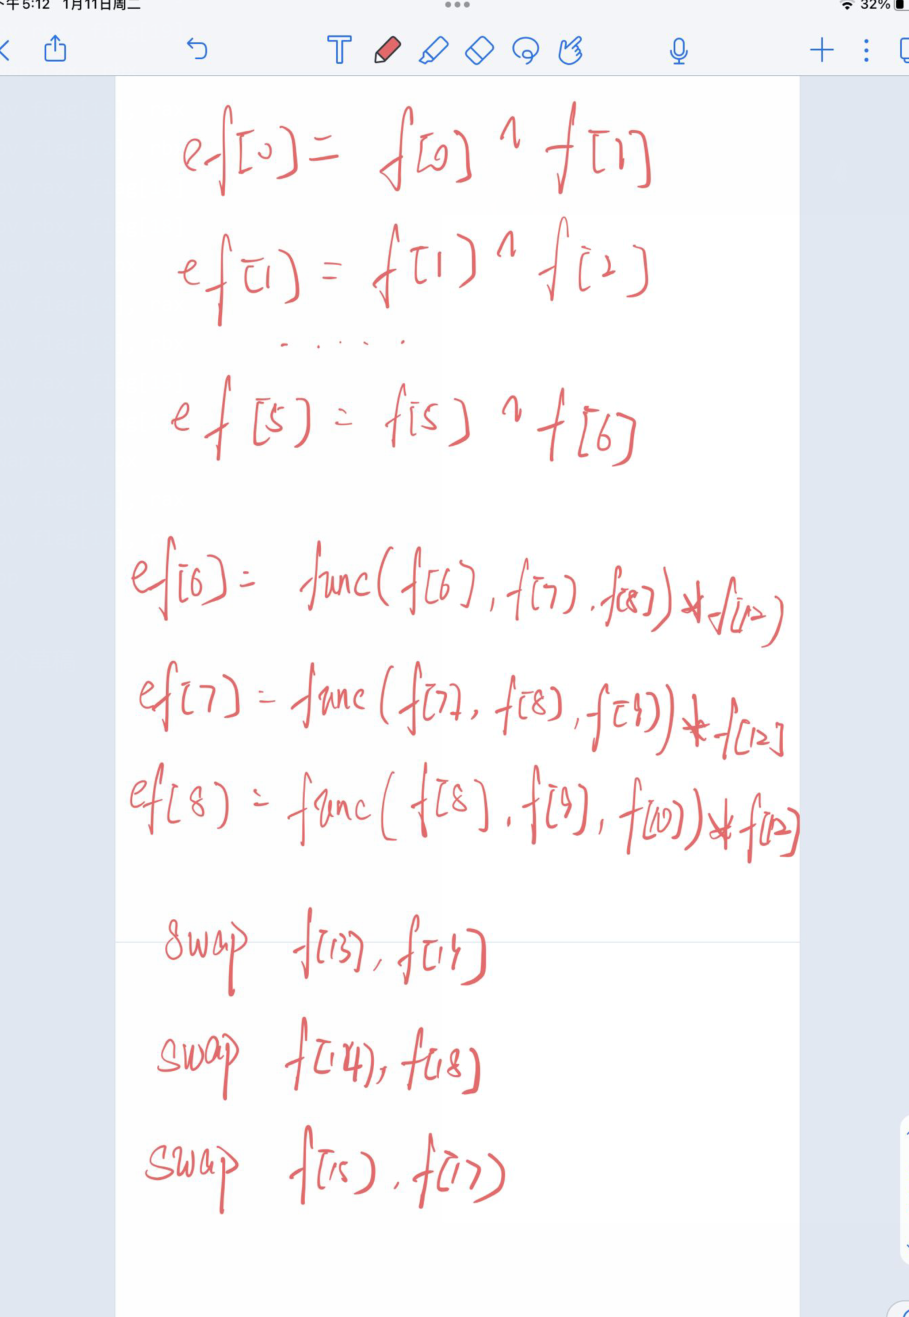 午5:12 1月11日周二 32%
T
ef[0]= f[0] ^ f[1]
ef[1) = f[1) ^ f[2)
.....
ef[5) = f[5) ^ f[6]
ef[6)= func(f[6), f[7), f[8])*f[12)
ef[7) = func(f[7], f[8), f[9))*f[12]
ef[8) = func(f[8), f[9), f[10))*f[12)
swap f[13), f[19)
swap f[14), f[18)
swap f[15), f[17)